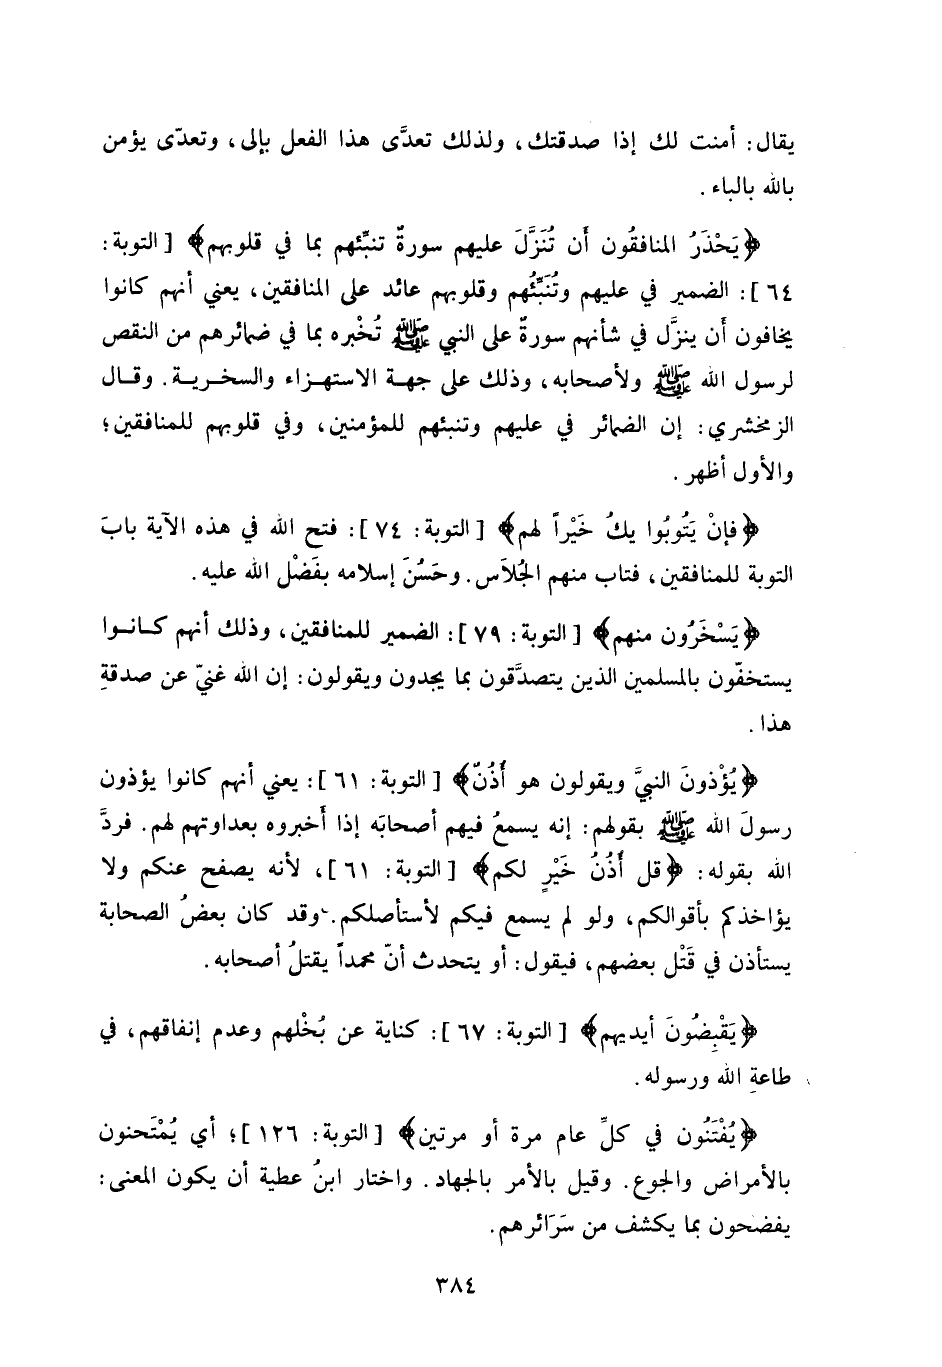 يقال: أمنت لك إذا صدقتك، ولذلك تعدَّى هذا الفعل بإلى، وتعدّى يؤمن
بالله بالباء.
﴿يَحْذَرُ المنافقُون أَن تُنَزَّلَ عليهم سورةٌ تنبِّئهم بما في قلوبهم﴾ [التوبة:
٦٤]: الضمير في عليهم وتُنَبِّئُهم وقلوبهم عائد على المنافقين، يعني أنهم كانوا
يخافون أَن ينزَّل في شأنهم سورةٌ على النبي ﷺ تُخْبره بما في ضمائرهم من النقص
لرسول الله ﷺ ولأصحابه، وذلك على جهـة الاستهـزاء والسخـريـة. وقـال
الزمخشري: إن الضمائر في عليهم وتنبئهم للمؤمنين، وفي قلوبهم للمنافقين؛
والأول أظهر.
﴿فإنْ يَتُوبُوا يكُ خَيْراً لهم﴾ [التوبة: ٧٤]: فتح الله في هذه الآية بابَ
التوبة للمنافقين، فتاب منهم الجُلاَس. وحَسُنَ إسلامه بفَضْل الله عليه.
﴿يَسْخَرُون منهم﴾ [التوبة: ٧٩]: الضمير للمنافقين، وذلك أنهم كـانـوا
يستخفّون بالمسلمين الذين يتصدَّقون بما يجدون ويقولون: إن الله غنيّ عن صدقةِ
هذا.
﴿يُؤْذونَ النبيَّ ويقولون هو أُذُنٌ﴾ [التوبة: ٦١]: يعني أنهم كانوا يؤذون
رسولَ الله ﷺ بقولهم: إنه يسمعُ فيهم أصحابَه إذا أَخبروه بعداوتهم لهم. فردَّ
الله بقوله: ﴿قل أُذُنُ خَيْرٍ لكم﴾ [التوبة: ٦١]، لأنه يصفح عنكم ولا
يؤاخذكم بأقوالكم، ولو لم يسمع فيكم لأستأصلكم. وقد كان بعضُ الصحابة
يستأذن في قَتْل بعضهم، فيقول: أو يتحدث أنّ محمداً يقتلُ أصحابه.
﴿يَقْبِضُونَ أيديهم﴾ [التوبة: ٦٧]: كناية عن بُخْلهم وعدم إنفاقهم، في
طاعةِ الله ورسوله.
﴿يُفْتَنُون في كلِّ عام مرة أو مرتين﴾ [التوبة: ١٢٦]؛ أي يُمْتَحنون
بالأمراض والجوع. وقيل بالأمر بالجهاد. واختار ابنُ عطية أن يكون المعنى:
يفضحون بما يكشف من سَرَائرهم.
٣٨٤